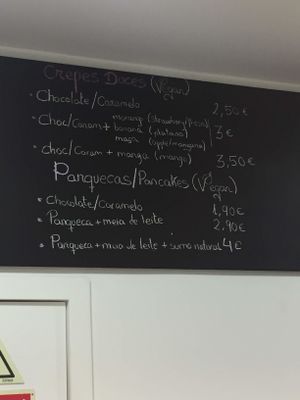 Crepes Doces (Vegan)
• Chocolate/Caramelo 2,50€
• Choc/Caram + morango (strawberry/fresa)
banana (platano) 3€
maçã (apple/manzana)
• Choc/Caram + manga (mango) 3,50€
Panquecas/Pancakes (Vegan)
• Chocolate/Caramelo 1,90€
• Panqueca + meia de leite 2,90€
• Panqueca + meia de leite + sumo natural 4€